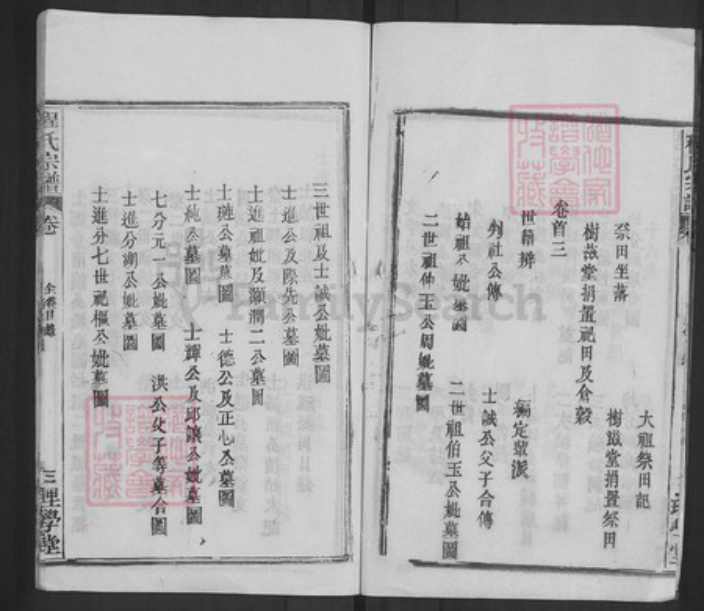 祭田坐落
大祖祭田記
樹滋堂捐置祀田及倉穀
樹滋堂捐置祭田
卷首三
世籍辨
編定輩派
列社公傳
士誠公父子合傳
始祖公妣墓圖
二世祖伯玉公妣墓圖
二世祖仲玉公周妣墓圖
三世祖及士誠公妣墓圖
士進公及際先公墓圖
士進祖妣及灝澗二公墓圖
士璉公墓圖
士德公及正心公墓圖
士純公墓圖
士譁公及邱讓公妣墓圖
七分元一公妣墓圖
洪公父子等墓合圖
士進分湖公妣墓圖
士進分七世祀樞公妣墓圖
程氏宗譜
卷
全卷目錄
三
理學堂
FamilySearch